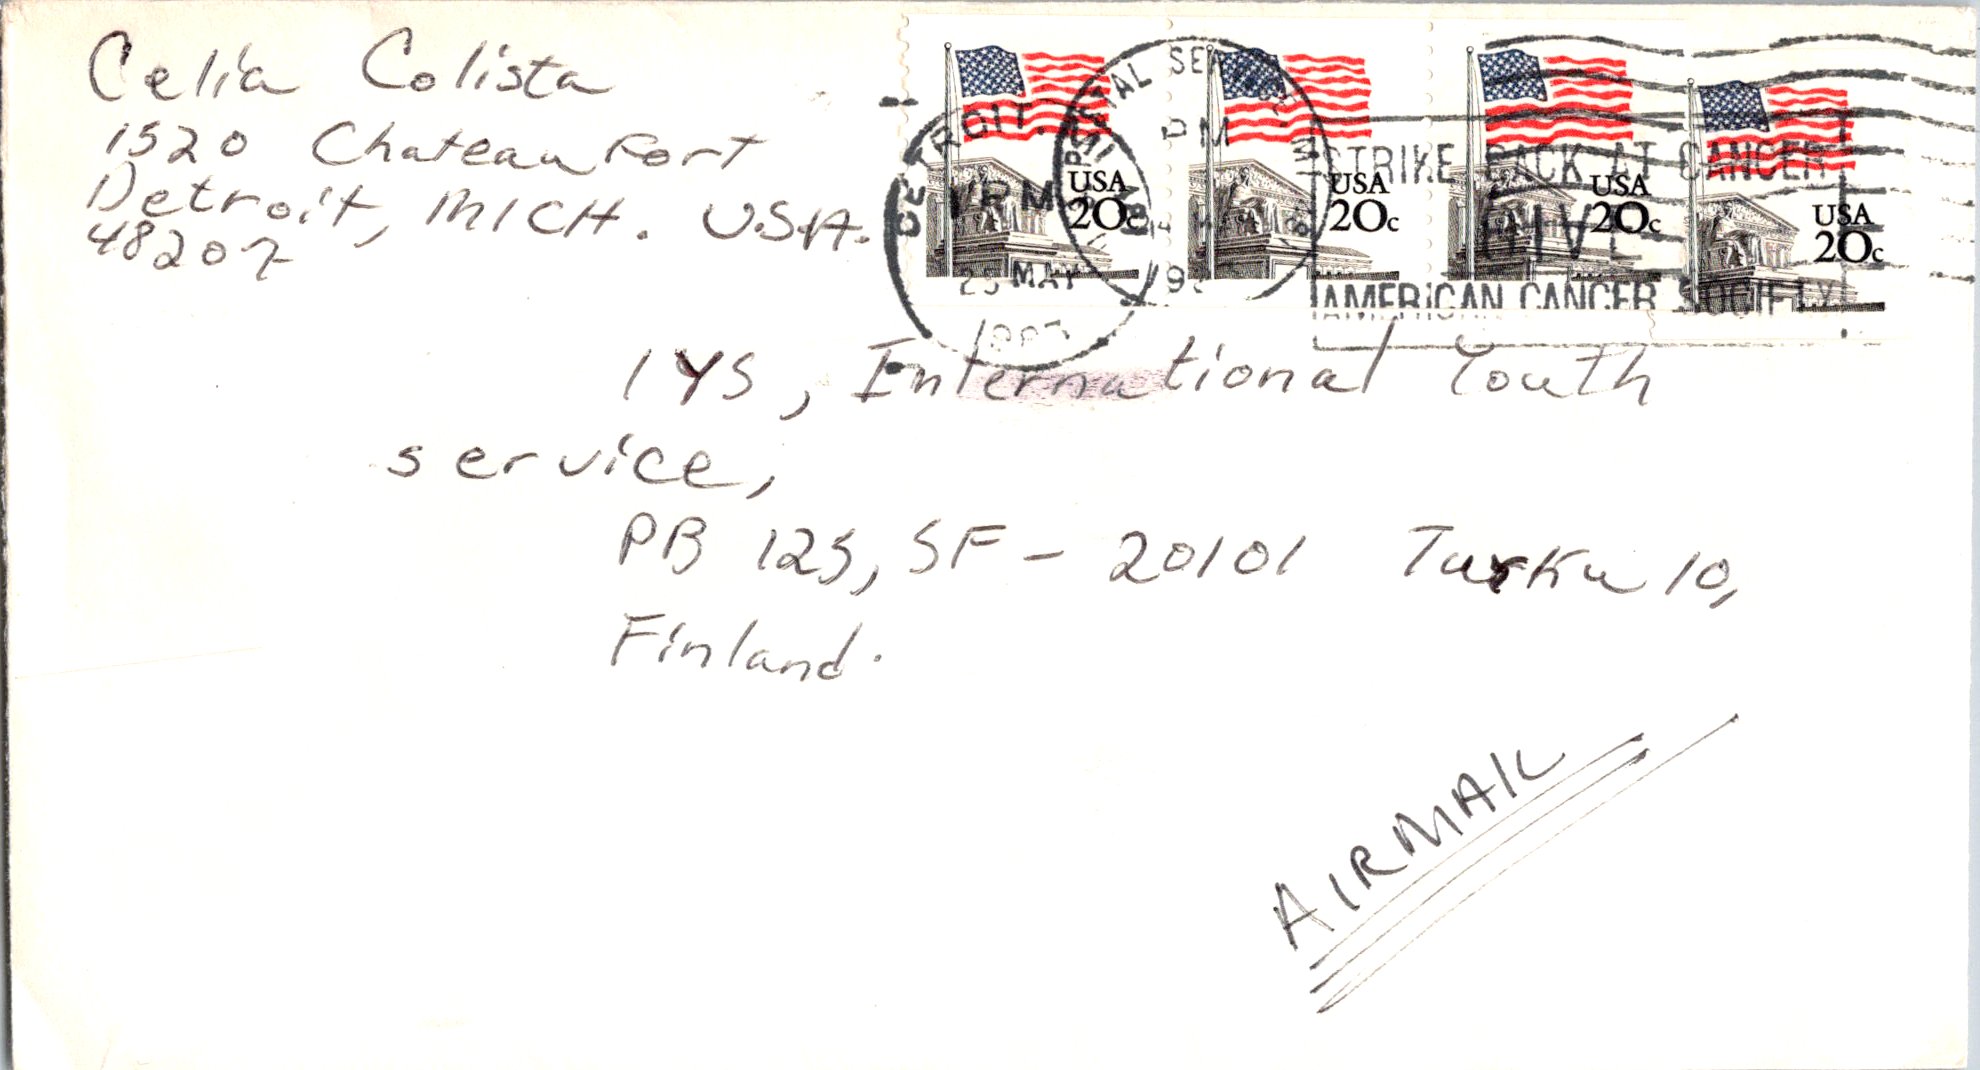 Celia Colista
1520 Chateaufort
Detroit, MICH. U.S.A.
48207
USA
20c
USA
20c
USA
20c
USA
20c
DETROIT, MI
PM
25 MAY
POSTAL SERVICE MI
PM
STRIKE BACK AT CANCER
GIVE
AMERICAN CANCER SOCIETY
IYS, International Youth
service,
PB 125, SF - 20101 Turku 10,
Finland.
AIRMAIL